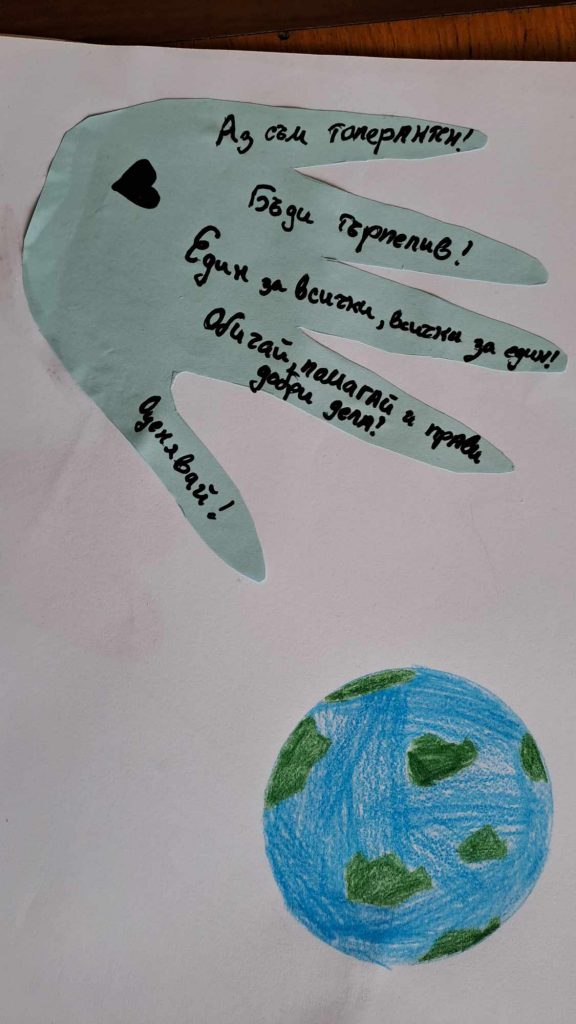 Аз съм толерантен!
Бъди търпелив!
Един за всички, всички за един!
Обичай, помагай и прави
добри дела!
Оценявай!